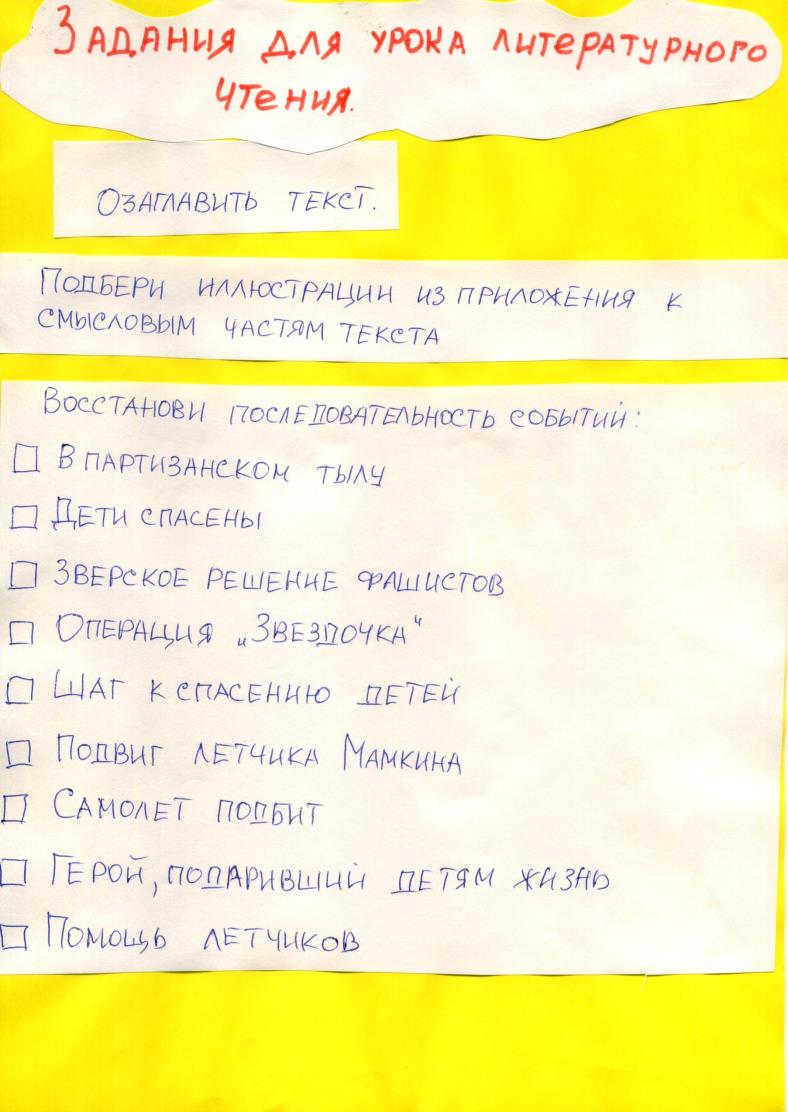 Задания для урока литературного
чтения.
Озаглавить текст.
Подбери иллюстрации из приложения к
смысловым частям текста
Восстанови последовательность событий:
В партизанском тылу
Дети спасены
Зверское решение фашистов
Операция „Звездочка“
Шаг к спасению детей
Подвиг летчика Мамкина
Самолет подбит
Герой, подаривший детям жизнь
Помощь летчиков